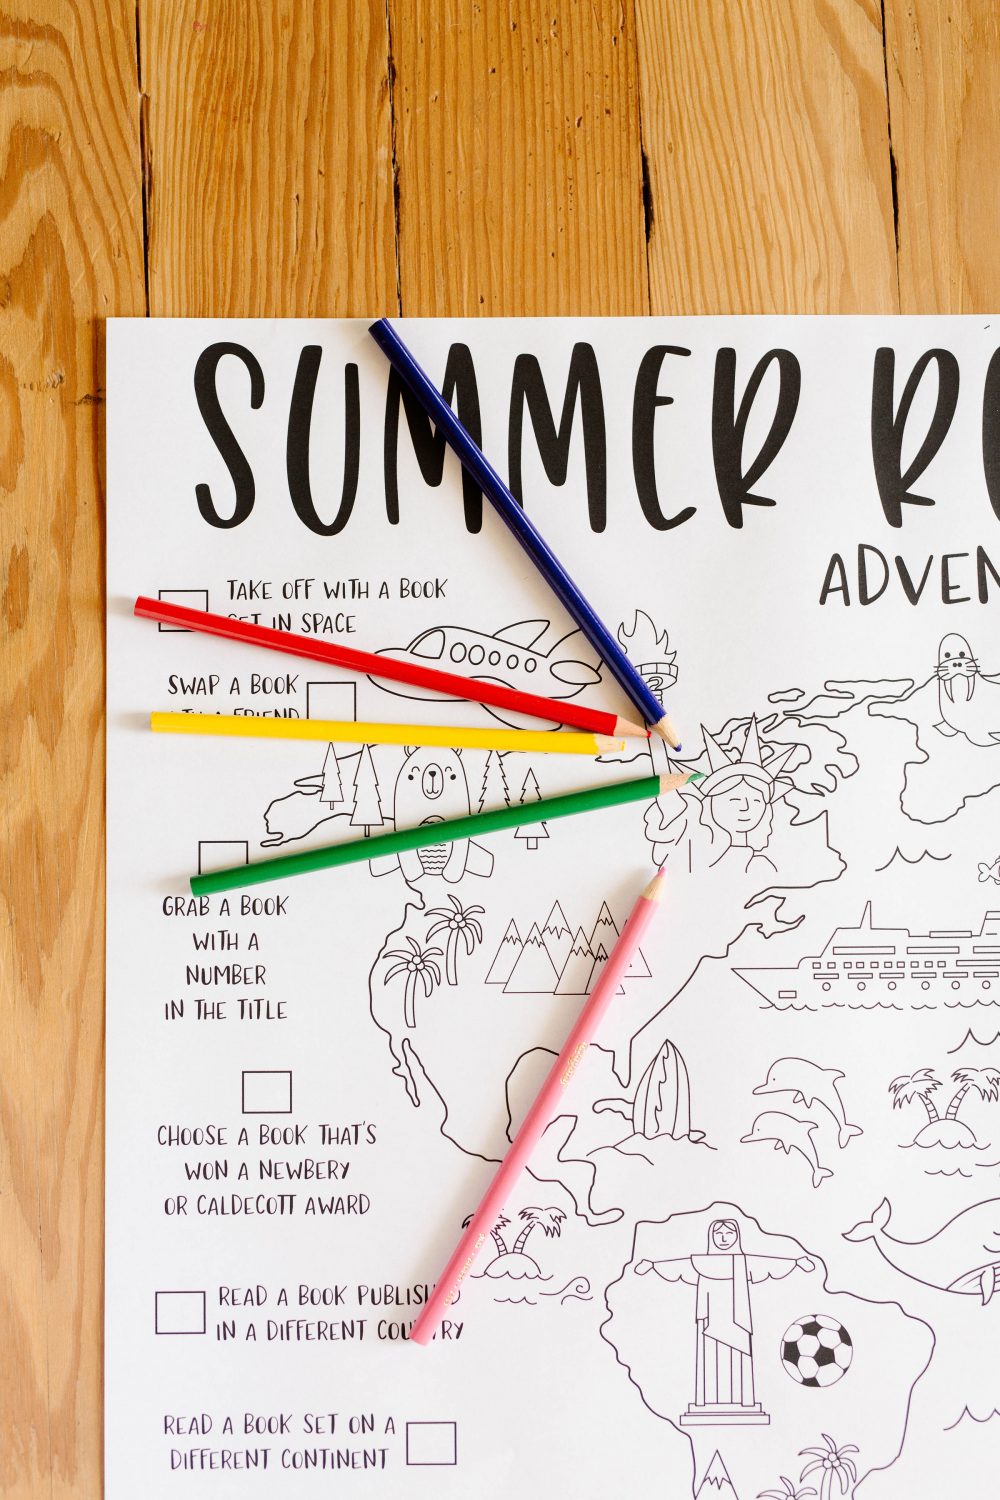 SUMMER RE
ADVEN
TAKE OFF WITH A BOOK
SET IN SPACE
SWAP A BOOK
WITH A FRIEND
GRAB A BOOK
WITH A
NUMBER
IN THE TITLE
CHOOSE A BOOK THAT'S
WON A NEWBERY
OR CALDECOTT AWARD
READ A BOOK PUBLISHED
IN A DIFFERENT COUNTRY
READ A BOOK SET ON A
DIFFERENT CONTINENT